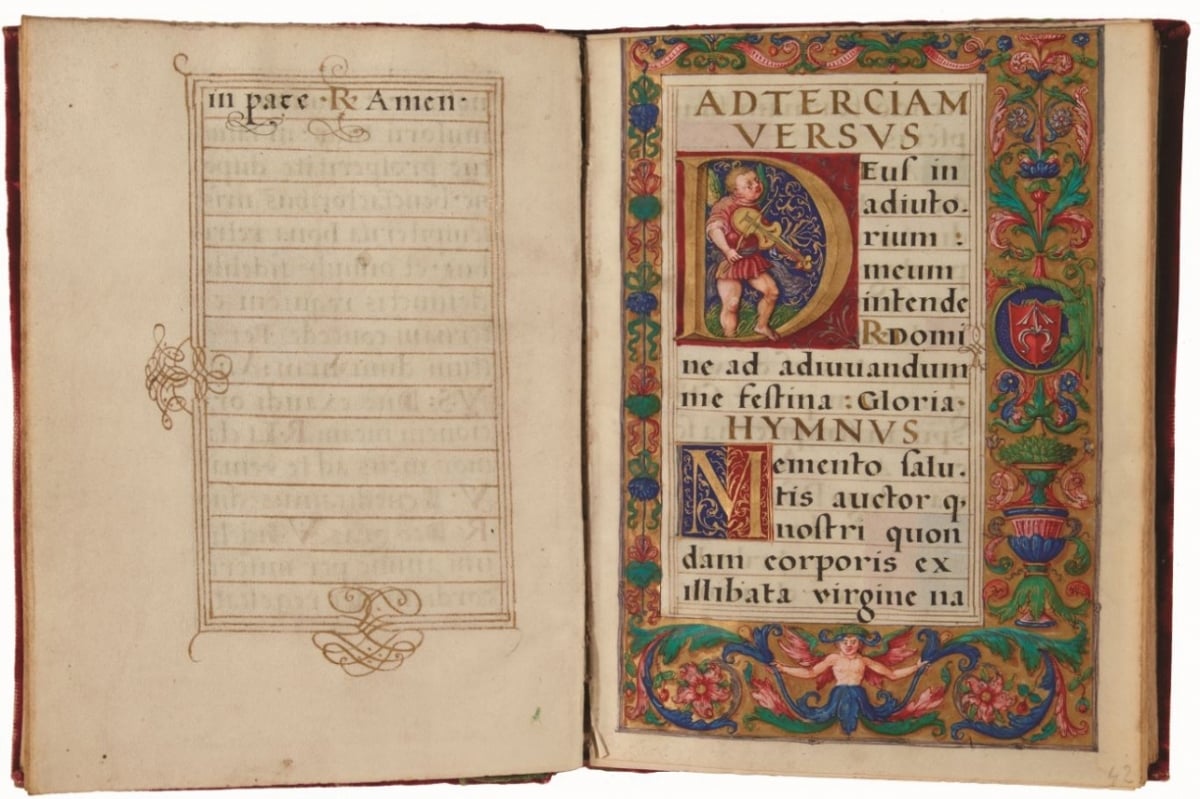 in pace · R Amen ·
AD TERCIAM
VERSVS
Deuſ in
adiuto.
rium :
meum
intende
R. Domi
ne ad adiuuandum
me feſtina : Gloria.
HYMNVS
Memento ſalu.
tis auctor q.
noſtri quon
dam corporis ex
illibata virgine na
42